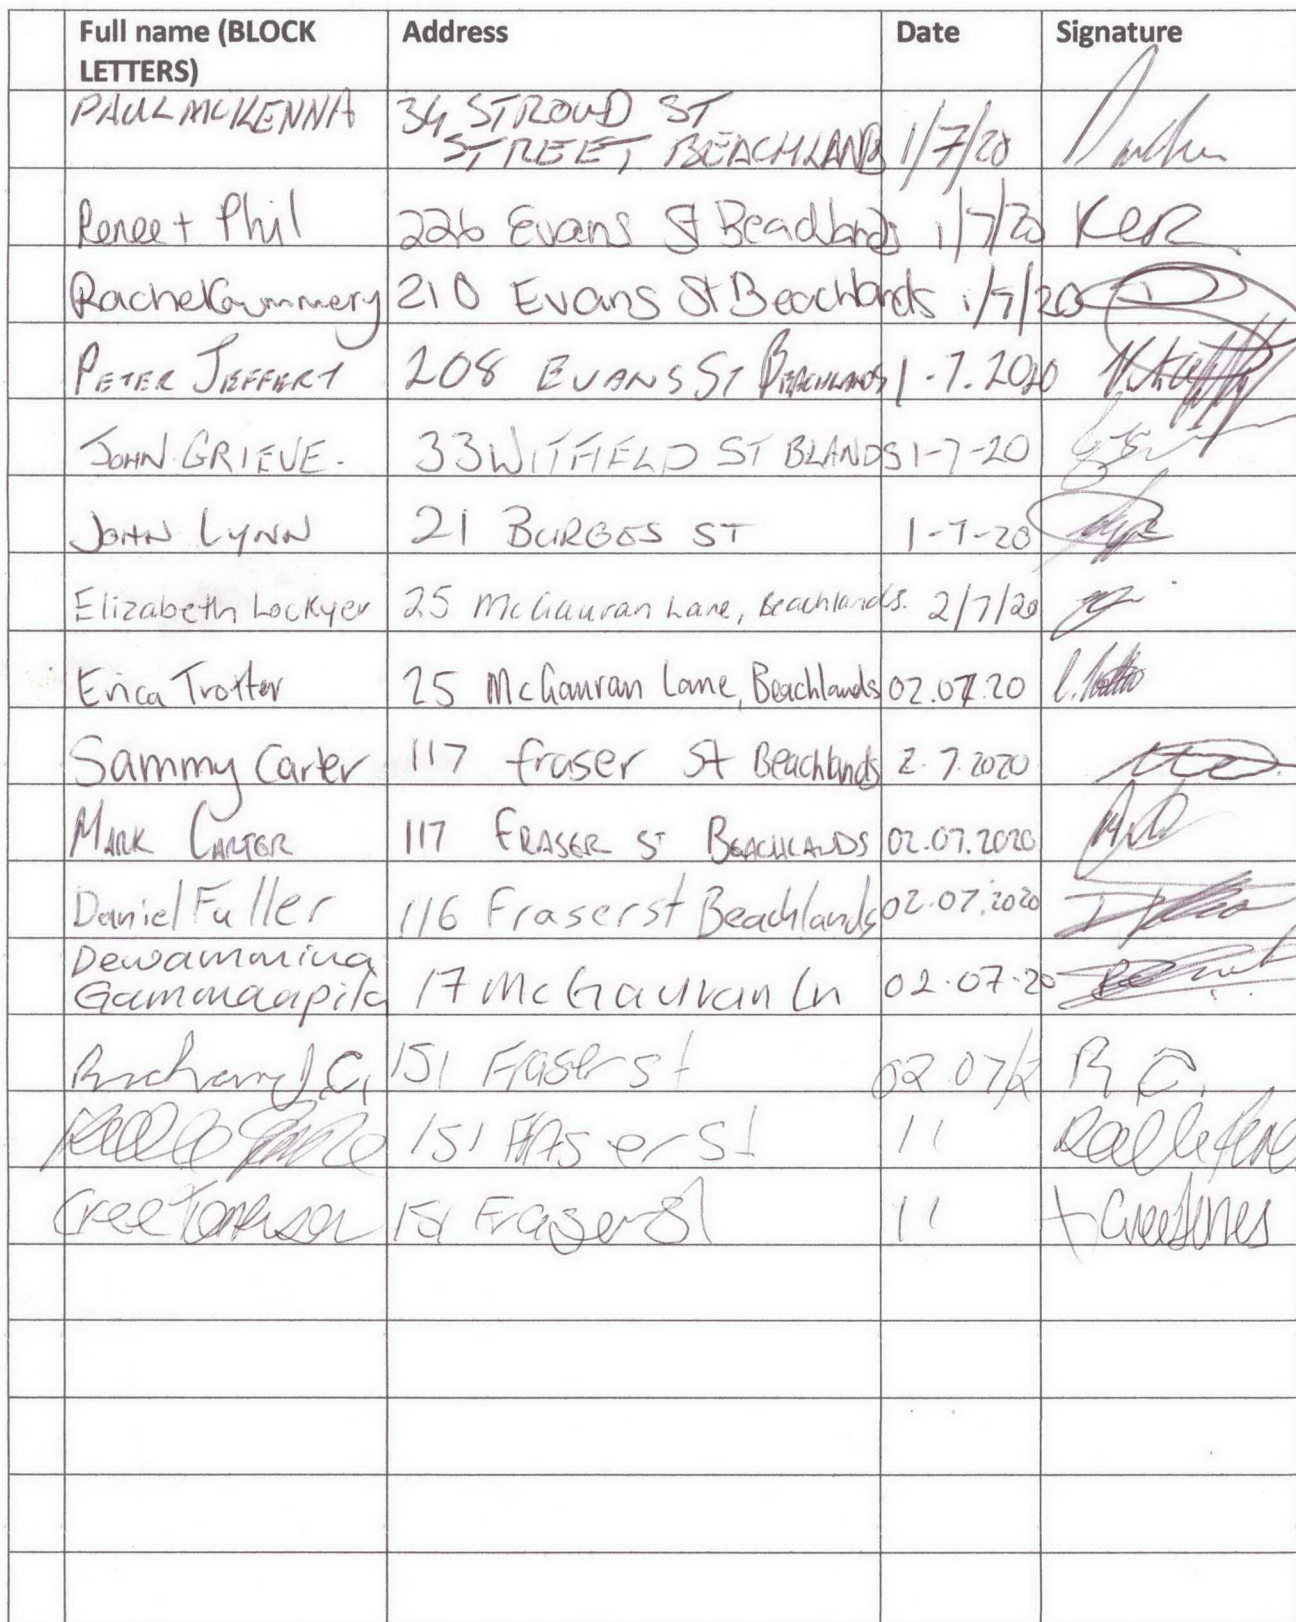 Full name (BLOCK LETTERS) Address Date Signature
PAUL MCKENNA 34 STROUD ST
STREET BEACHLAND 1/7/20
Renee + Phil 226 Evans St Beachlands 1/7/20 Ker
Rachel Gummery 210 Evans St Beachlands 1/7/20
PETER JEFFERT 208 EVANS ST BEACHLANDS 1-7.2020
JOHN GRIEVE. 33 WITFIELD ST BLANDS 1-7-20
JOHN LYNN 21 BURGES ST 1-7-20
Elizabeth Lockyer 25 McGauran Lane, Beachlands. 2/7/20
Erica Trotter 25 McGauran Lane, Beachlands 02.07.20
Sammy Carter 117 fraser St Beachlands 2.7.2020
MARK CARTER 117 FRASER ST BEACHLANDS 02.07.2020
Daniel Fuller 116 Fraser st Beachlands 02.07.2020
Dewammina
Gammaapila 17 McGauran Ln 02.07.20
Richard C. 151 Fraser st 02.07/2 R C.
151 FRAser St 11
Cree 151 Fraser St 11